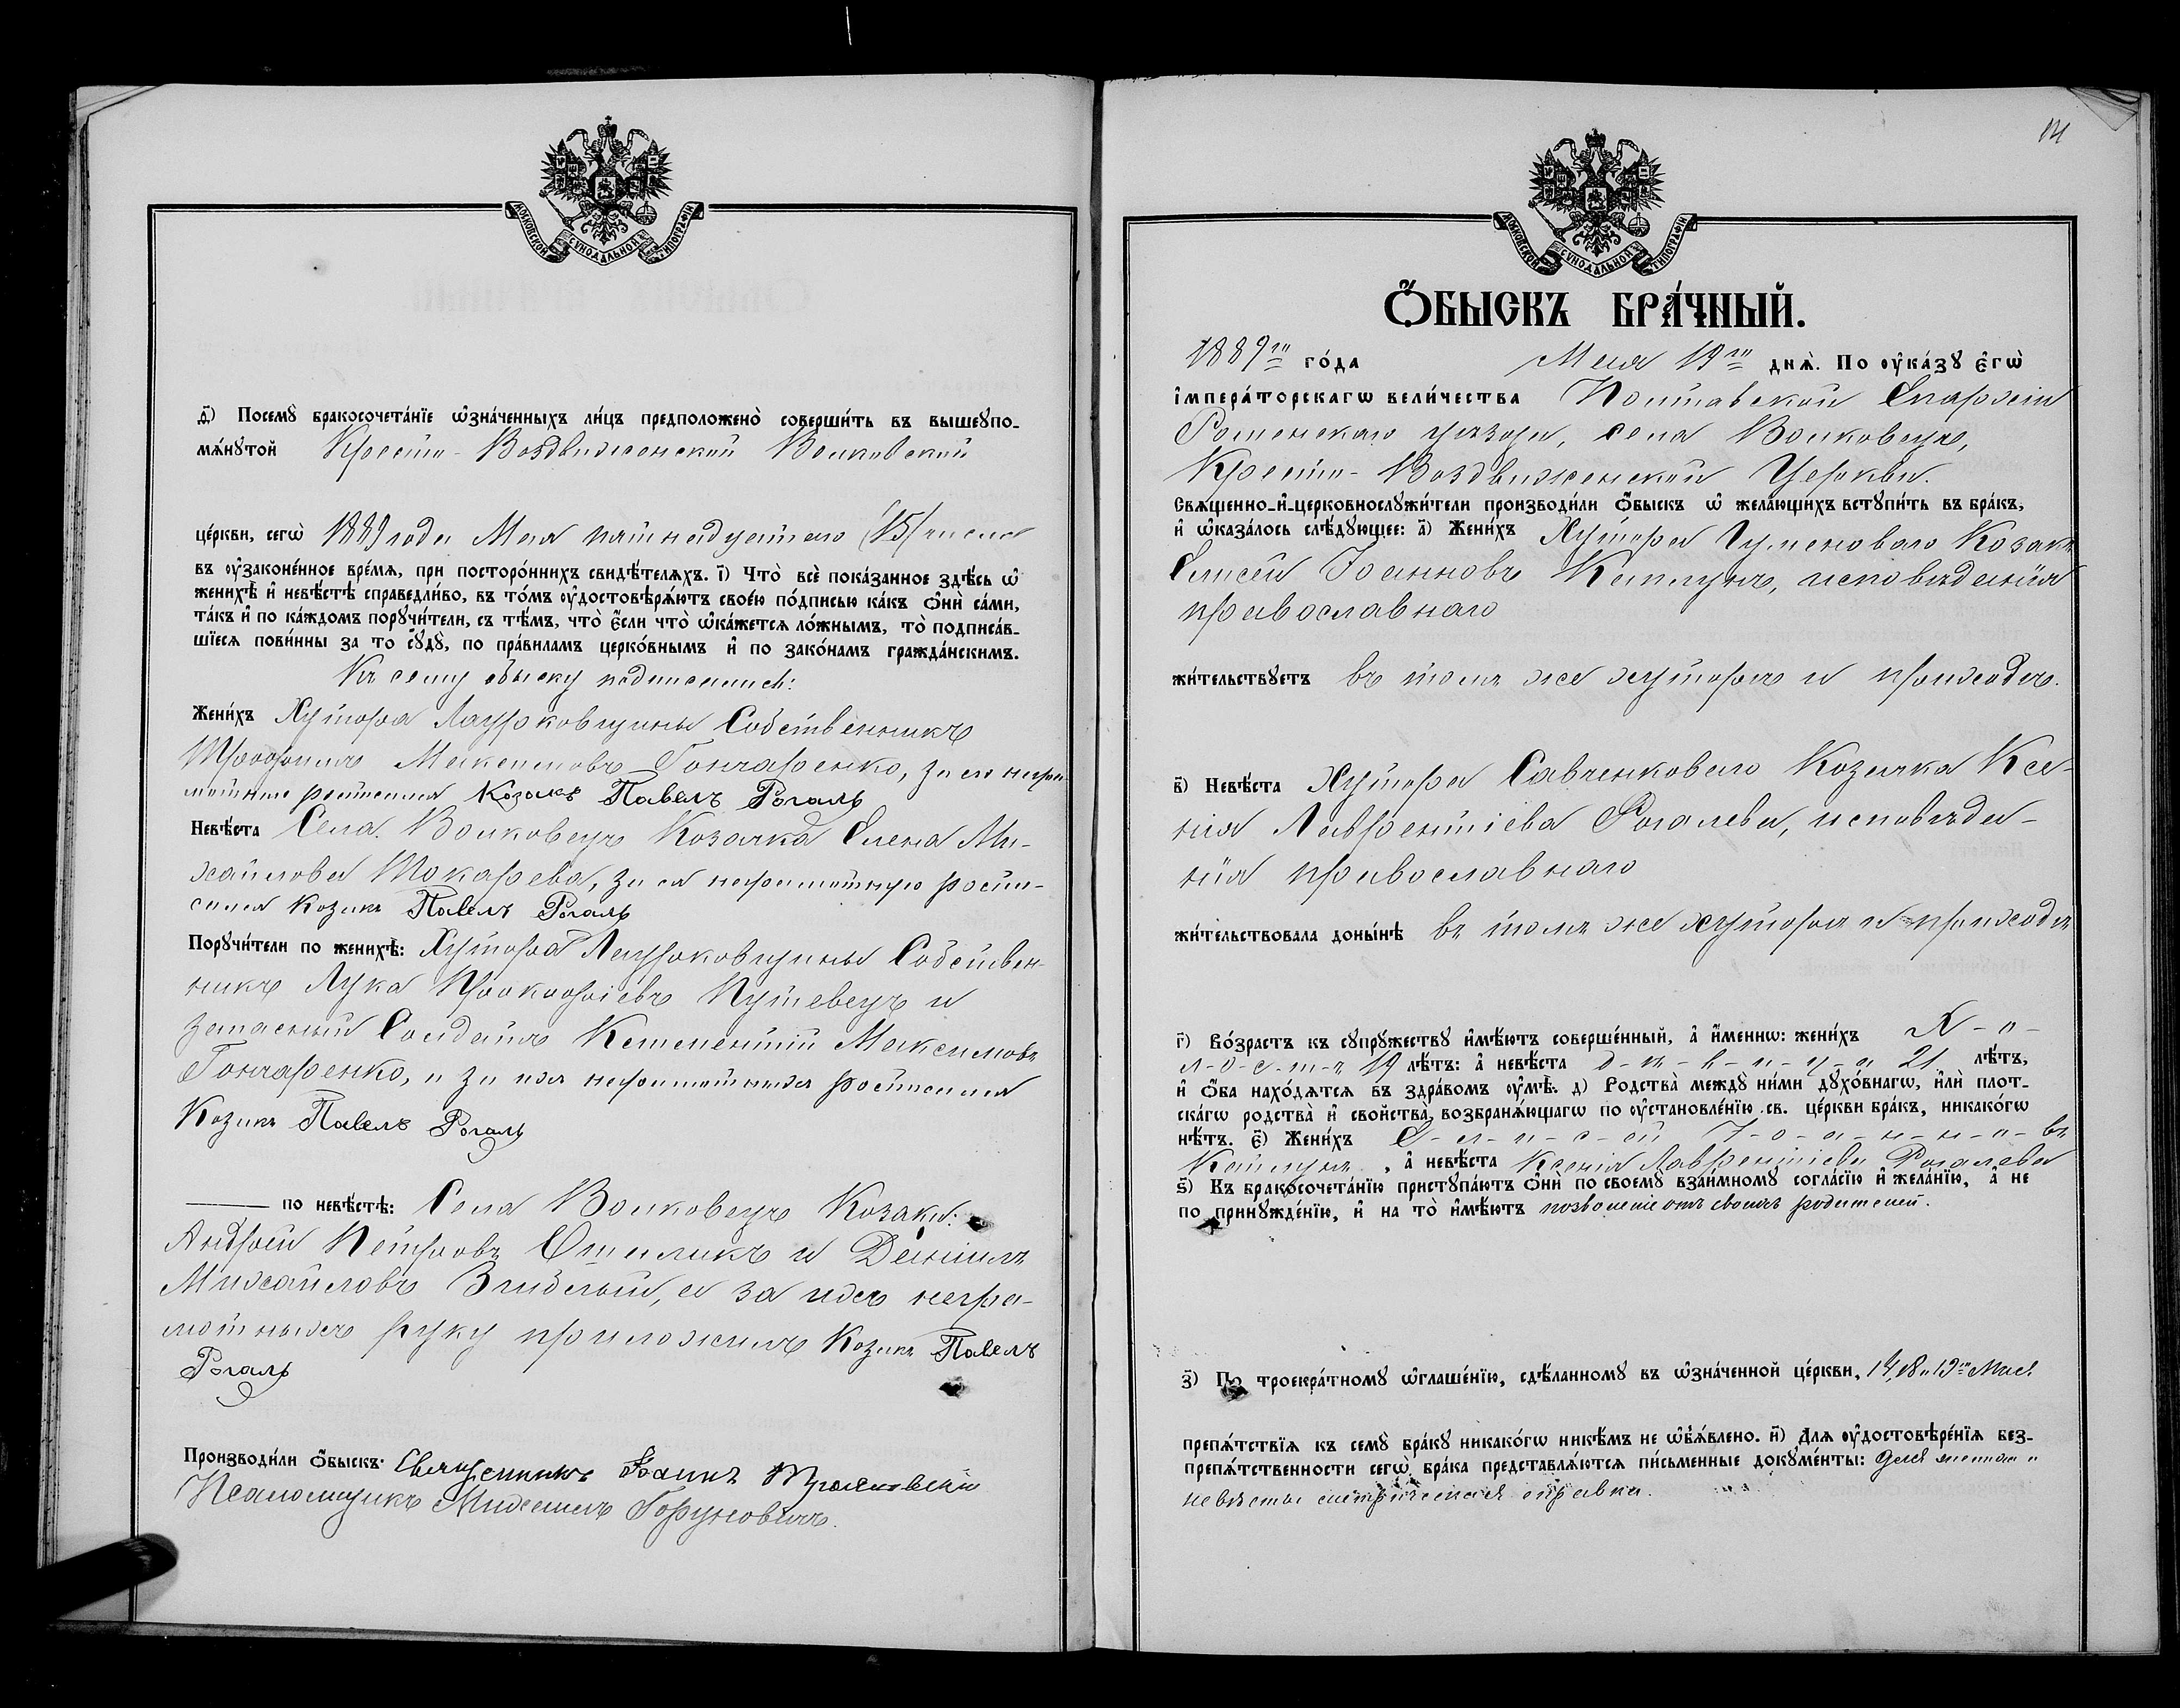 МОСКОВСКОЙ СѴНОДАЛЬНОЙ ТИПОГРАФІИ
д҃і) Посемꙋ̀ бракосочета́нїе ѡ҆зна́ченныхъ ли́цъ предположено̀ соверши́ть въ вышеꙋпо-
мѧ́нꙋтой Кресто-Воздвиженской Волковской
це́ркви, сегѡ̀ 1889 года Мая пятнадцатаго (15) числа
въ ᲂу҆законе́нное вре́мѧ, при посторо́ннихъ свидѣ́телѧхъ. і҃) Что̀ всѐ пока́занное здѣ́сь ѡ҆
женихѣ̀ и҆ невѣ́стѣ справедли́во, въ то́мъ ᲂу҆достовѣрѧ́ютъ свое́ю по́дписью ка́къ ѻ҆нѝ са́ми,
та́къ и҆ по ка́ждомъ порꙋчи́тели, съ тѣ́мъ, что̀ є҆́сли что̀ ѡ҆ка́жетсѧ ло́жнымъ, то̀ подписа́в-
шїесѧ пови́нны за то сꙋдꙋ̀, по пра́виламъ церко́внымъ и҆ по зако́намъ гражда́нскимъ.
Къ сему обыску подписались:
Жени́хъ Хутора Лаурковщины Собственникъ
Трофимъ Максимовъ Гончаренко, за его негра-
мотные росписался Козакъ Павелъ Рогаль
Невѣ́ста Села Волковецъ Козачка Елена Ми-
хайлова Токарева, за ея неграмотную роспи-
сался Козакъ Павелъ Рогаль
Порꙋчи́тели по женихѣ̀: Хутора Лаурковщины Собствен-
никъ Лука Прокофіевъ Путевецъ и
запасный Солдатъ Климентій Максимовъ
Гончаренко, а за ихъ неграмотныхъ росписался
Козакъ Павелъ Рогаль
по невѣ́стѣ: Села Волковецъ Козаки:
Андрей Петровъ и Даніилъ
Михайловъ а за ихъ негра-
мотныхъ руку приложилъ Козакъ Павелъ
Рогаль
Производи́ли ѻ҆́быскъ: Священникъ Іоаннъ
Псаломщикъ Михаилъ Горуновичъ.
МОСКОВСКОЙ СѴНОДАЛЬНОЙ ТИПОГРАФІИ
Ѻ҆́БЫСКЪ БРА́ЧНЫЙ.
1889го го́да Мая 19го днѧ̀. По ᲂу҆ка́зꙋ є҆гѡ̀
і҆мпера́торскагѡ вели́чества Полтавской Епархіи
Роменскаго уѣзда, села Волковецъ,
Кресто-Воздвиженской Церкви.
Свѧщенно-и҆-церковнослꙋжи́тели производи́ли ѻ҆́быскъ ѡ҆ жела́ющихъ встꙋпи́ть въ бра́къ,
и҆ ѡ҆каза́лось слѣ́дꙋющее: а҃) Жени́хъ Хутора Гуменоваго Козакъ
Елисей Іоанновъ исповѣданія
православнаго
жи́тельствꙋетъ въ томъ же хуторѣ и приходѣ.
в҃) Невѣ́ста Хутора Савченковаго Козачка Ксе-
нія Лаврентіева Рогалева, исповѣда-
нія православнаго
жи́тельствовала доны́нѣ въ томъ же хуторѣ и приходѣ
г҃) Во́зрастъ къ сꙋпрꙋ́жествꙋ и҆мѣ́ютъ соверше́нный, а҆ и҆́меннѡ: жени́хъ Х-о-
л-о-с-т-ъ 19 лѣ́тъ: а҆ невѣ́ста д-ѣ-в-и-ц-а 21 лѣ́тъ,
и҆ ѻ҆́ба нахо́дѧтсѧ въ здра́вомъ ᲂу҆мѣ̀. д҃) Родства̀ междꙋ̀ ни́ми дꙋхо́внагѡ, и҆лѝ плот-
ска́гѡ родства̀ и҆ сво́йства̀, возбранѧ́ющагѡ по ᲂу҆становле́нїю св. це́ркви бра́къ, никако́гѡ
нѣ́тъ. є҃) Жени́хъ Е-л-и-с-ей І-о-а-н-н-о-въ
, а҆ невѣ́ста Ксенія Лаврентіева Рогалева
ѕ҃) Къ бракосочета́нїю пристꙋпа́ютъ ѻ҆нѝ по своемꙋ̀ взаи́мномꙋ согла́сїю и҆ жела́нїю, а҆ не
по принꙋжде́нїю, и҆ на то̀ и҆мѣ́ютъ позволеніе отъ своихъ родителей.
з҃) По троекра́тномꙋ ѡ҆глаше́нїю, сдѣ́ланномꙋ въ ѡ҆зна́ченной це́ркви, 14, 18 и 19го Мая
препѧ́тствїѧ къ семꙋ̀ бра́кꙋ никако́гѡ никѣ́мъ не ѡ҆б̾ѧ́влено. и҃) Длѧ ᲂу҆достовѣре́нїѧ без-
препѧ́тственности сегѡ̀ бра́ка представлѧ́ютсѧ пи́сьменные докꙋме́нты: для жениха и
невѣсты метрическая справка.